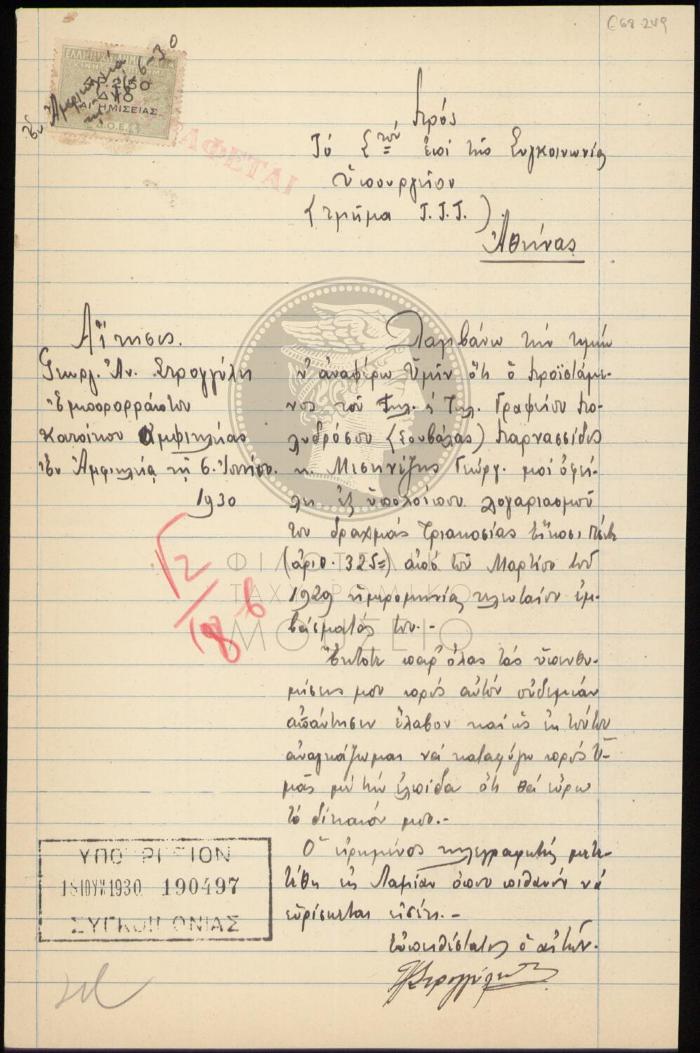 C68.249
Ἐν Ἀμφικλείᾳ
τῇ 6-6-30
Πρὸς
Τὸ Σ<sup>τὸν</sup> ἐπὶ τῆς Συγκοινωνίας
Ὑπουργεῖον
(τμῆμα Τ.Τ.Τ.)
Ἀθήνας
Αἴτησις
Γεωργ. Ἀν. Στρογγύλη
Ἐμποροράπτου
κατοίκου Ἀμφικλείας
Ἐν Ἀμφικλείᾳ τῇ 6 Ἰουνίου
1930
Λαμβάνω τὴν τιμὴν
ν' ἀναφέρω Ὑμῖν ὅτι ὁ προϊστάμε-
νος τοῦ Τηλ. & Ταχ. Γραφείου Πο-
λυδρόσου (Σουβάλας) Παρνασσίδος
κ. Γεώργ. μοὶ ὀφεί-
λει ἐξ ὑπολοίπου λογαριασμοῦ
του δραχμὰς Τριακοσίας εἴκοσι πέντε
(ἀριθ. 325=) ἀπὸ τοῦ Μαρτίου τοῦ
1929 ἡμερομηνίας τελευταίου ἐμ-
βάσματός του.-
Ἔκτοτε παρ' ὅλας τὰς ὑπενθυ-
μήσεις μου πρὸς αὐτὸν οὐδεμίαν
ἀπάντησιν ἔλαβον καὶ ὡς ἐκ τούτου
ἀναγκάζομαι νὰ καταφύγω πρὸς Ὑ-
μᾶς μὲ τὴν ἐλπίδα ὅτι θὰ εὕρω
τὸ δίκαιόν μου.-
Ὁ εἰρημένος τηλεγραφητὴς μετε-
τέθη εἰς Λαμίαν ὅπου πιθανὸν νὰ
εὑρίσκεται εἰσέτι.-
Εὐπειθέστατος ὁ αἰτῶν.
ΦΙΛΟΤΕΛΙΚΟ
ΤΑΧΥΔΡΟΜΙΚΟ
ΜΟΥΣΕΙΟ
ΥΠΟΥΡΓΕΙΟΝ
18 ΙΟΥΝ 1930 190497
ΣΥΓΚΟΙΝΩΝΙΑΣ